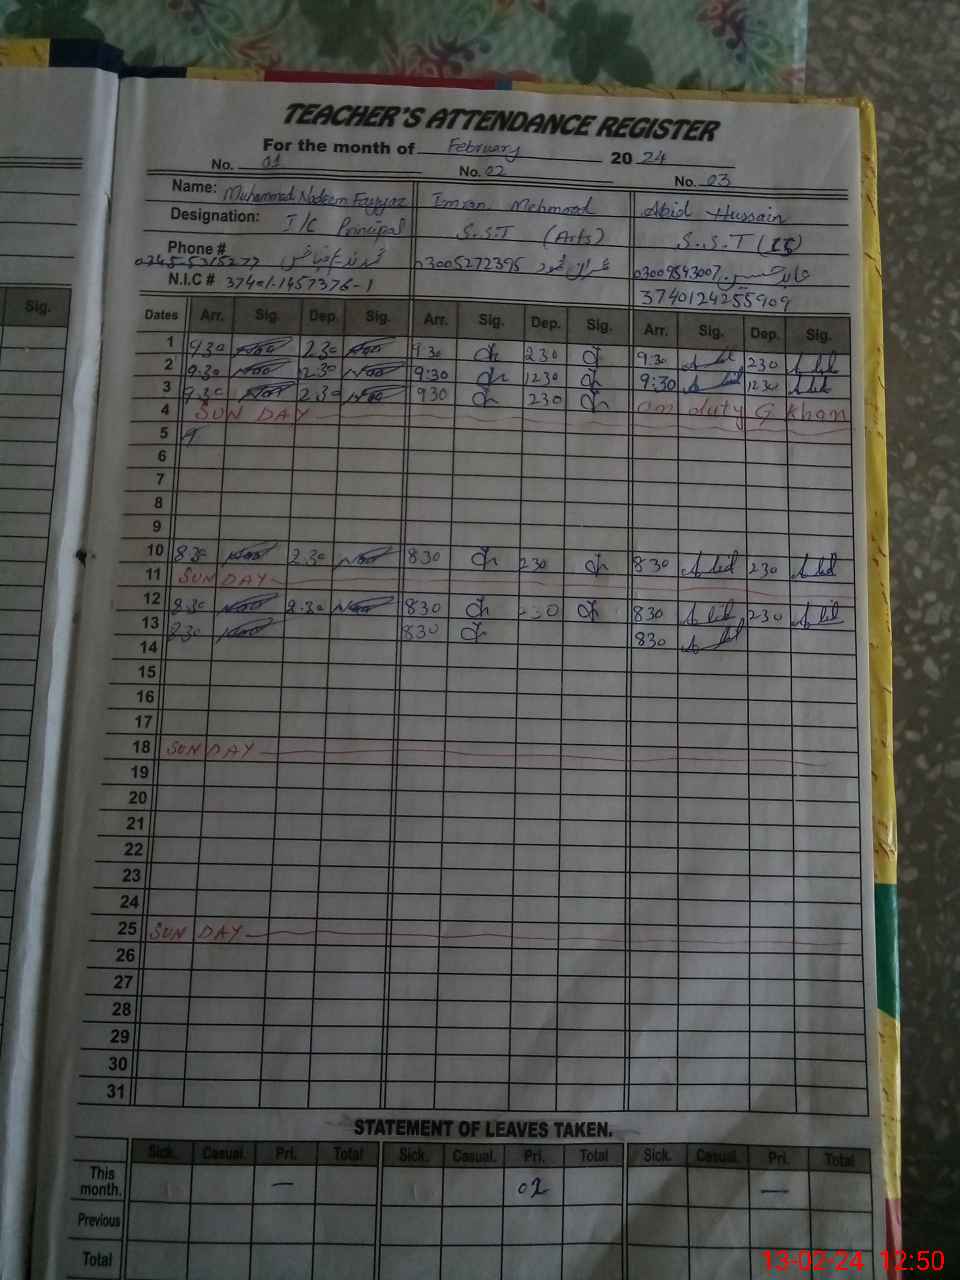 Sig.
TEACHER'S ATTENDANCE REGISTER
For the month of February 2024
No. 01 No. 02 No. 03
Name: Muhammad Nadeem Fayyaz Imran Mehmood Abid Hussain
Designation: I/C Principal S.S.T (Arts) S.S.T
Phone # 0345-5315277 03005272395 03009543007
N.I.C # 37401-1457376-1 3740124255909
Dates Arr. Sig. Dep. Sig. Arr. Sig. Dep. Sig. Arr. Sig. Dep. Sig.
1 9.30 2.30 9.30 230 9.30 Abid 230 Abid
2 9.30 2.30 9:30 1230 9:30 Abid 1230 Abid
3 9.30 2.30 930 230 on duty G Khan
4 SUNDAY
5
6
7
8
9
10 8.30 2.30 830 230 830 Abid 230 Abid
11 SUNDAY
12 8.30 2.30 830 830 Abid 230 Abid
13 830 830 830 Abid
14
15
16
17
18 SUNDAY
19
20
21
22
23
24
25 SUNDAY
26
27
28
29
30
31
STATEMENT OF LEAVES TAKEN.
Sick. Casual. Pri. Total Sick. Casual. Pri. Total Sick. Casual. Pri. Total
This month. — 02 —
Previous
Total
13-02-24 12:50